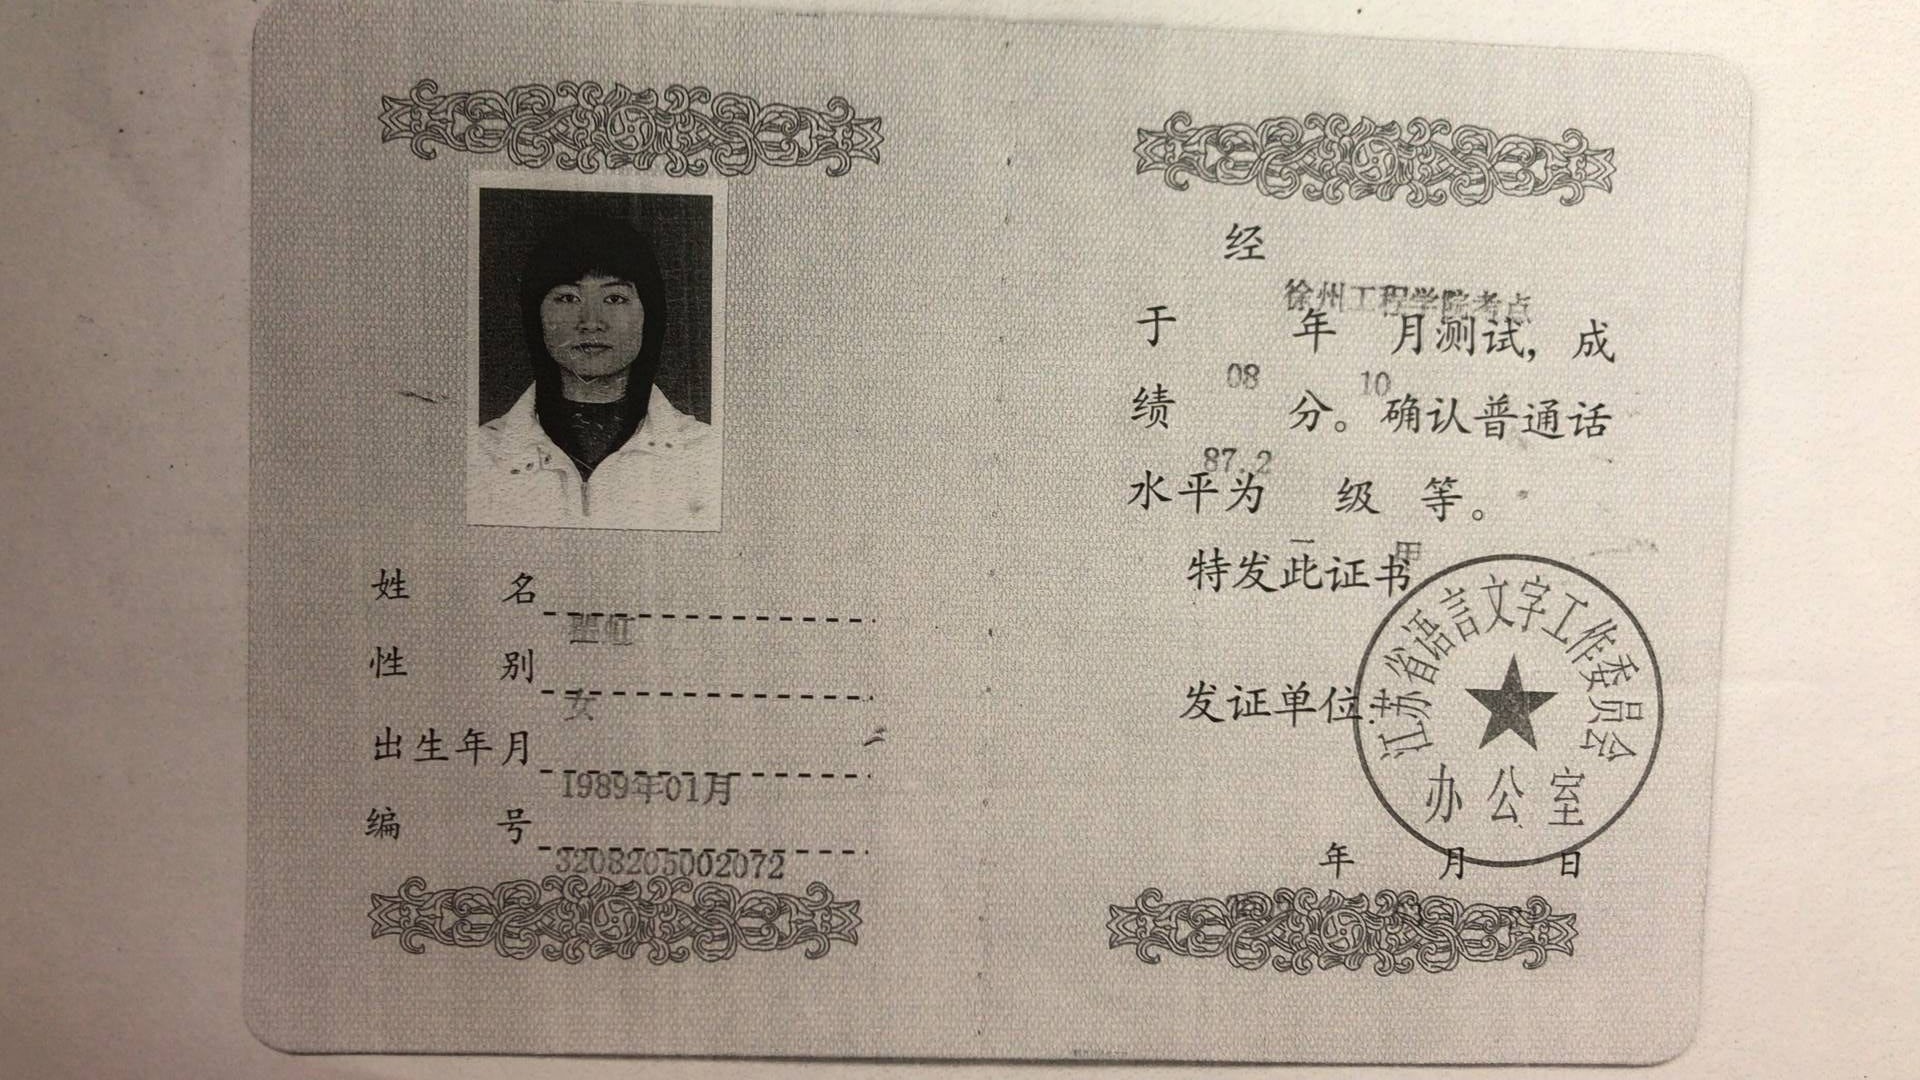 姓名
性别 女
出生年月 1989年01月
编号 3208205002072
经 徐州工程学院考点
于 08 年 10 月测试，成
绩 87.2 分。确认普通话
水平为 级 等。
特发此证书
发证单位：
江苏省语言文字工作委员会
办公室
年 月 日